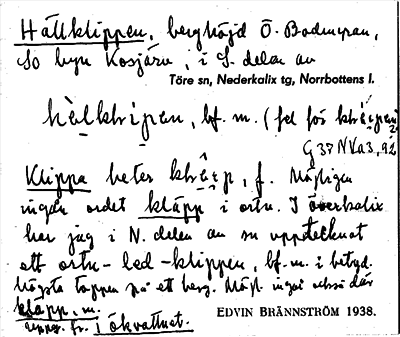 Hällklippen, berghöjd Ö. Bodmyran,
SO byn Kosjärv, i S. delen av
Töre sn, Nederkalix tg, Norrbottens l.
bf. m. (fel för
G 37 NVa3, 92
Klippa heter f. Möjligen
ingår ordet kläpp i ortn. I överkalix
har jag i N. delen av sn upptecknat
ett ortn-led -klippen, bf. m. i betyd.
högsta toppen på ett berg. Möjl. ingår också där
kläpp, m.
Uppg. fr. J Ökvattnet.
EDVIN BRÄNNSTRÖM 1938.